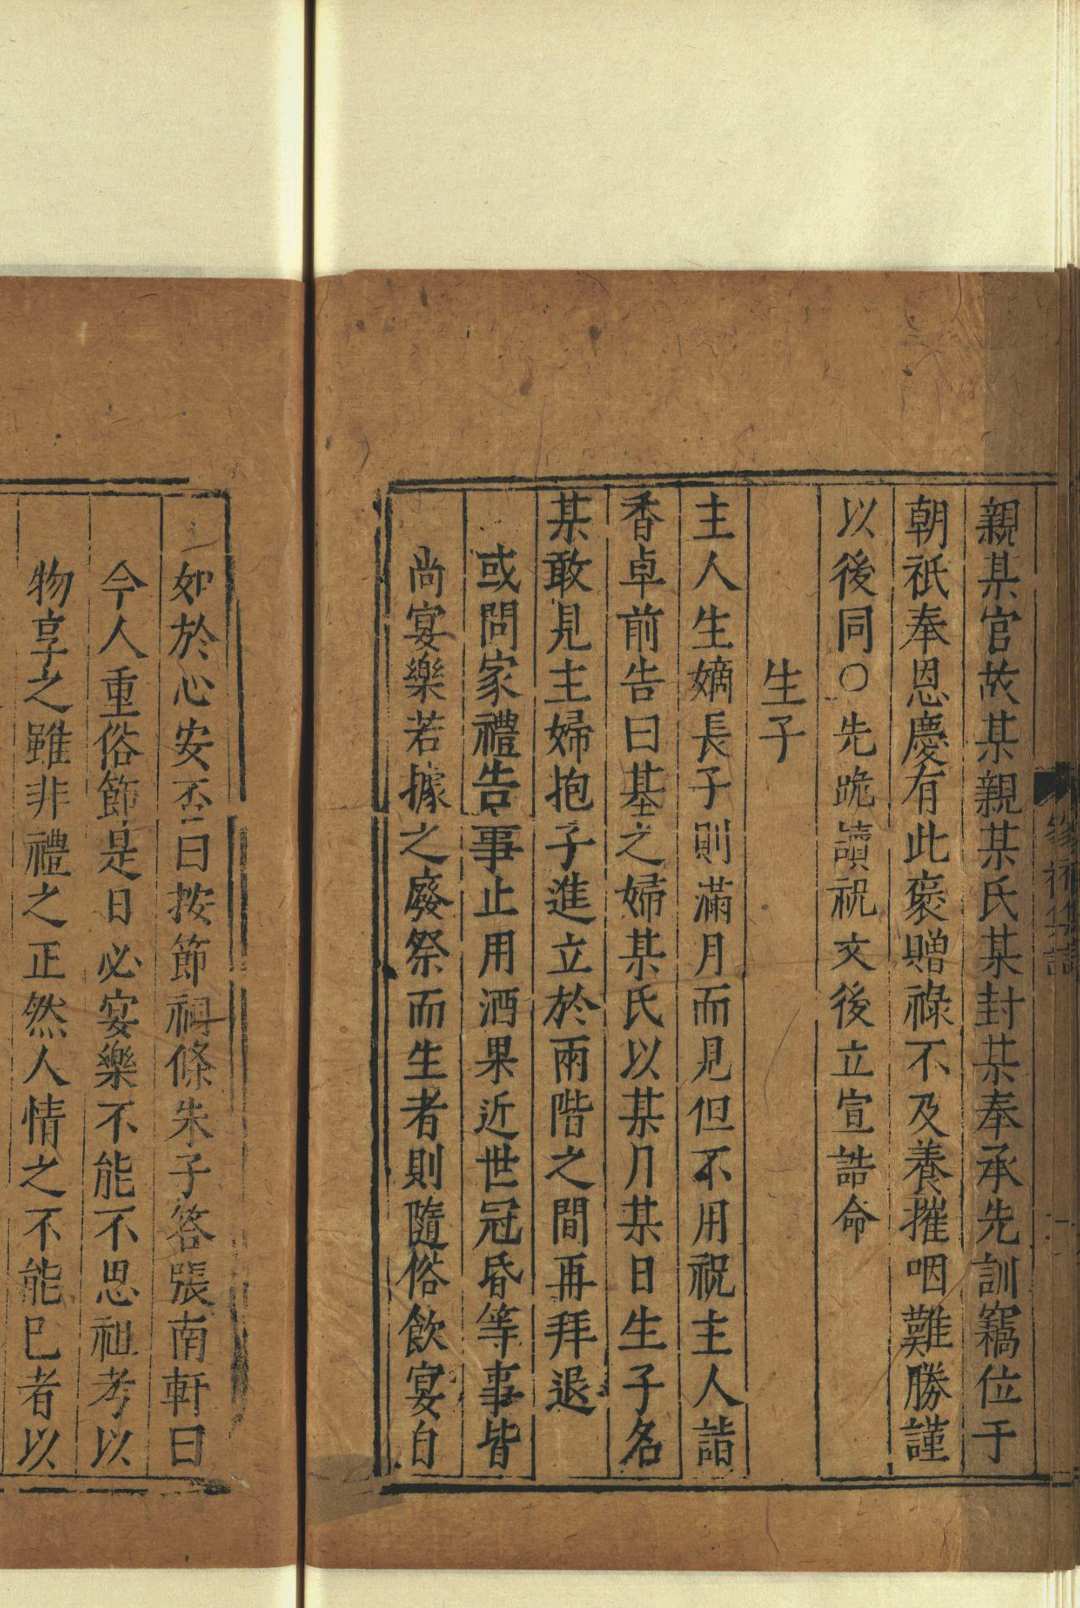 親某官故某親某氏某封某奉承先訓竊位于
朝祇奉恩慶有此褒贈祿不及養摧咽難勝謹
以後同〇先跪讀祝文後立宣誥命
生子
主人生嫡長子則滿月而見但不用祝主人詣
香卓前告曰某之婦某氏以某月某日生子名
某敢見主婦抱子進立於兩階之間再拜退
或問家禮告事止用酒果近世冠昏等事皆
尚宴樂若據之廢祭而生者則隨俗飲宴自
如於心安否曰按節祠條朱子答張南軒曰
今人重俗節是日必宴樂不能不思祖考以
物享之雖非禮之正然人情之不能已者以